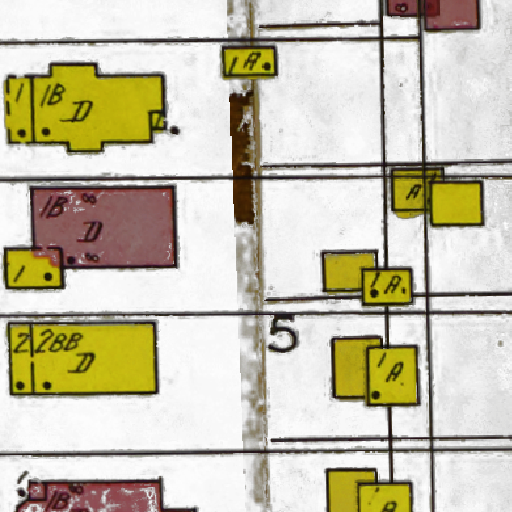 1 A
1 1B
D
1
A
1B
D
1
1 A.
5
2 2BB
D
1
A.
1B
A